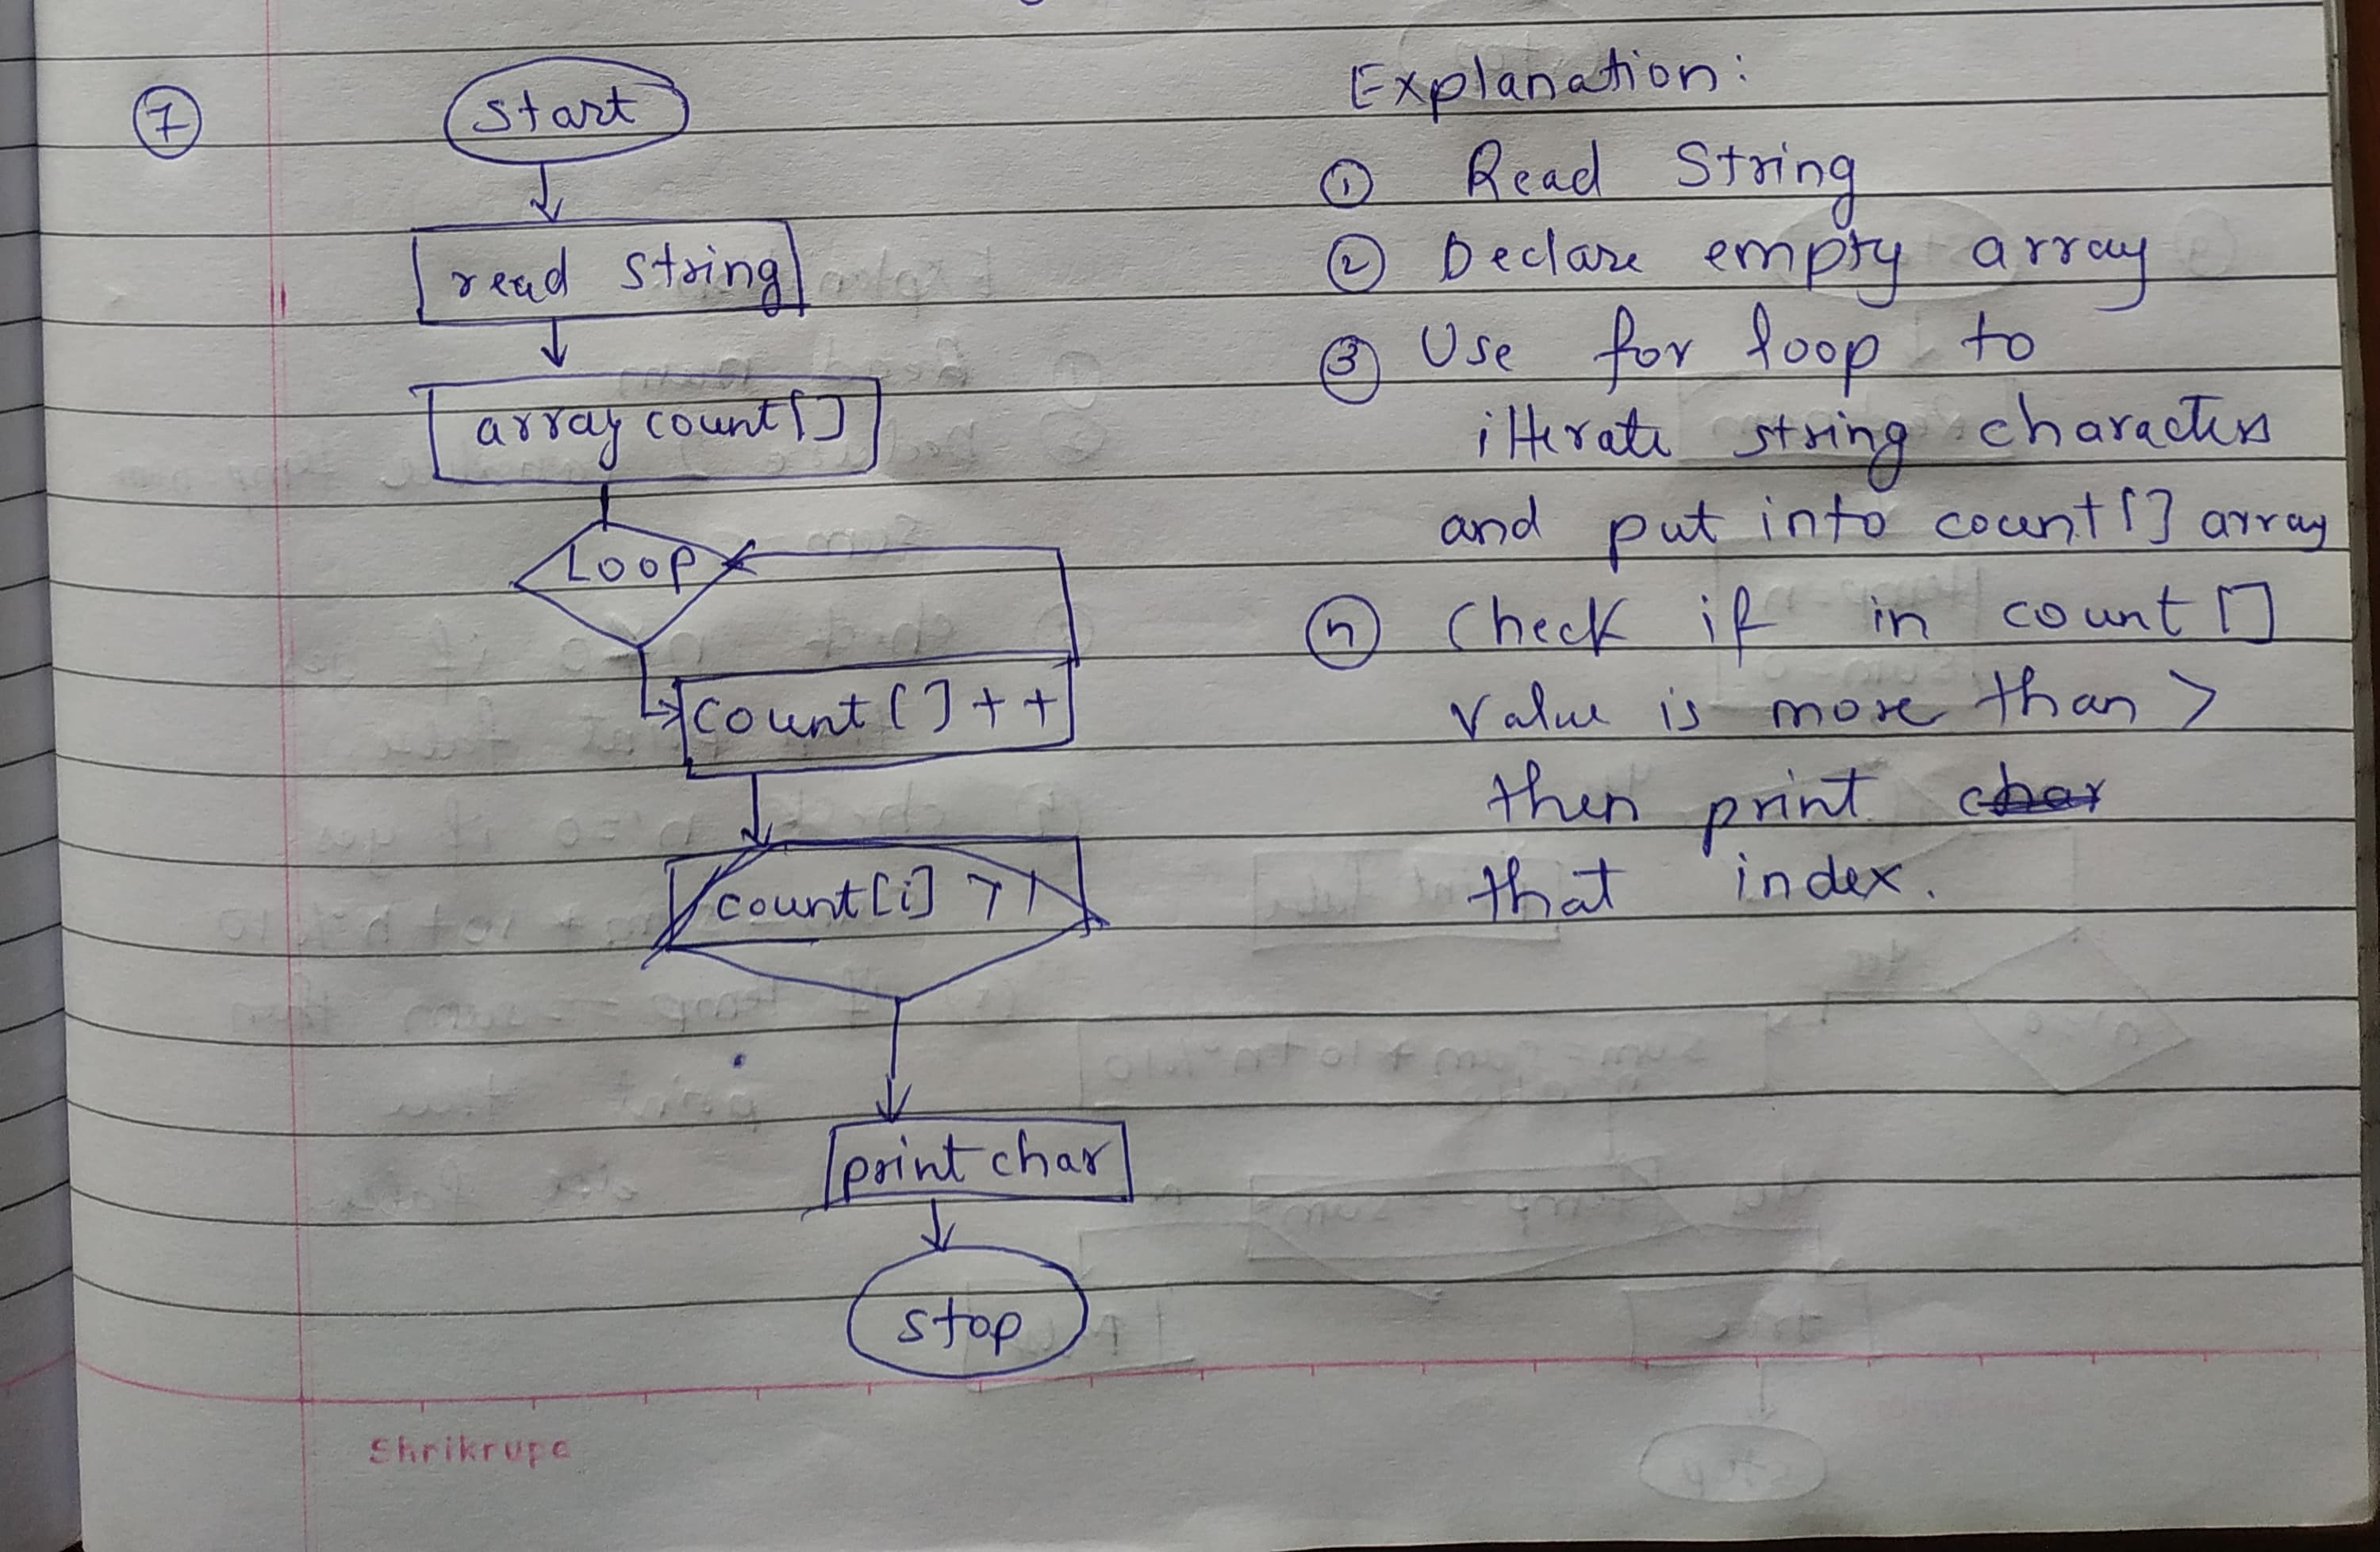 7
start
read string
array count[]
Loop
count[]++
count[i] > 1
print char
stop
Explanation:
1 Read String
2 Declare empty array
3 Use for loop to
itterate string characters
and put into count[] array
n Check if in count[]
value is more than >
then print char
that index.
Shrikrupa